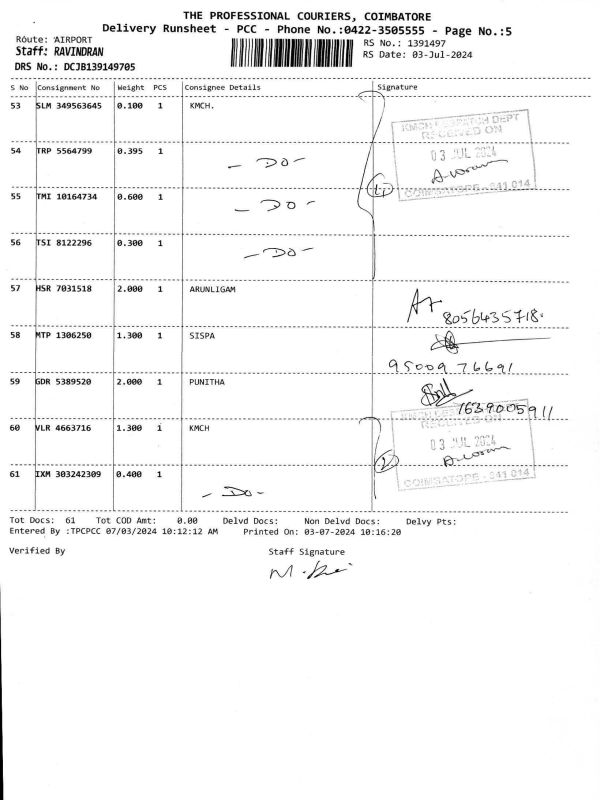 THE PROFESSIONAL COURIERS, COIMBATORE
Delivery Runsheet - PCC - Phone No.:0422-3505555 - Page No.:5
Route: AIRPORT
RS No.: 1391497
Staff: RAVINDRAN
RS Date: 03-Jul-2024
DRS No.: DCJB139149705
S No Consignment No Weight PCS Consignee Details Signature
53 SLM 349563645 0.100 1 KMCH.
KMCH DESPATCH DEPT
RECEIVED ON
03 JUL 2024
COIMBATORE - 641 014
54 TRP 5564799 0.395 1 - DO -
55 TMI 10164734 0.600 1 - DO -
56 TSI 8122296 0.300 1 - DO -
57 HSR 7031518 2.000 1 ARUNLIGAM
8056435718.
58 MTP 1306250 1.300 1 SISPA
9500976691
59 GDR 5389520 2.000 1 PUNITHA
7639005911
60 VLR 4663716 1.300 1 KMCH
KMCH DESPATCH DEPT
RECEIVED ON
03 JUL 2024
COIMBATORE - 641 014
61 IXM 303242309 0.400 1 - DO -
Tot Docs: 61 Tot COD Amt: 0.00 Delvd Docs: Non Delvd Docs: Delvy Pts:
Entered By :TPCPCC 07/03/2024 10:12:12 AM Printed On: 03-07-2024 10:16:20
Verified By Staff Signature